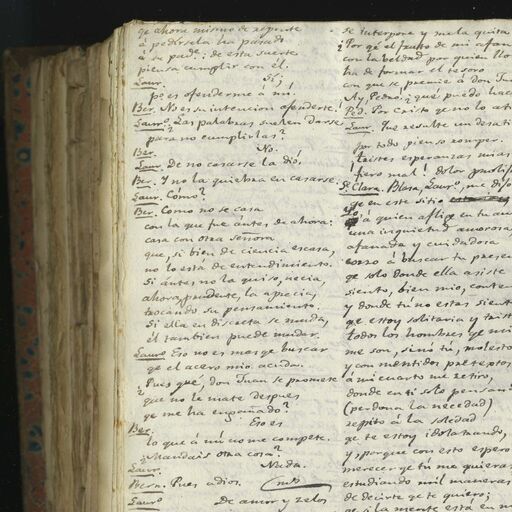 qe ahora mismo de repente
á pedírsela ha pasado
á su pad.: de esta suerte
piensa cumplir con él.
Laur. Sí;
pe es ofenderme á mí.
Ber. No es su intencion ofenderte.
Laurº. Las palabras suelen darse
para no cumplirlas?
Ber. No.
Laur. De no casarse la dió,
Ber. Y no la quiebra en casarse.
Laur. Cómo?
Ber. Como no se casa
con la que fué ántes de ahora:
casa con otra señora
que, si bien de ciencia escasa,
no lo está de entendimiento.
Si ántes no la quiso, necia,
ahora, prudente, la aprecia,
trocando su pensamiento.
Si ella en discreta se muda,
él tambien puede mudar.
Laurº Eso no es mas qe buscar
qe el acero mio acuda.
Pues qué, don Juan se promete
que no le mate despues
qe me ha engañado?
Ber. Eso es
lo que á mí no me compete.
¿Mandais otra cosa?
Laur. Nada.
Bern. Pues adios. (vase)
Laurº De amor y zelos
se interpone y me la quita
¿Por qé el fruto de mi afan
con la beldad por quien llo
ha de formar el tesoro
con que se premie á don Ju
Ay, Pedro! ¿qué puedo hac
Ped. Por Cristo qe no lo at
Laur. Fue resulte un desati
por todo pienso romper.
tristes esperanzas mias
fiero mal! dolor prolijo
Dª Clara. Blasa, Laurº, me dijo
qe en este sitio
á quien aflige en tu au
una inquietud amorosa,
afanada y cuidadosa
corro á buscar tu presen
qe solo donde ella asiste
siento, bien mio, conten
y donde tú no estas sient
qe estoy solitaria y trist
todos los hombres qe mi
me son, sinó tú, molesto
y con mentidos pretextos
á mi cuarto me retiro,
donde en tí solo pensan
(perdona la necedad)
repito á la soledad
qe te estoy idolatrando,
y porque con esto espero
merecer qe tú me quieras
estudiando mil maneras
de decirte qe te quiero;
qe si la mente está en m